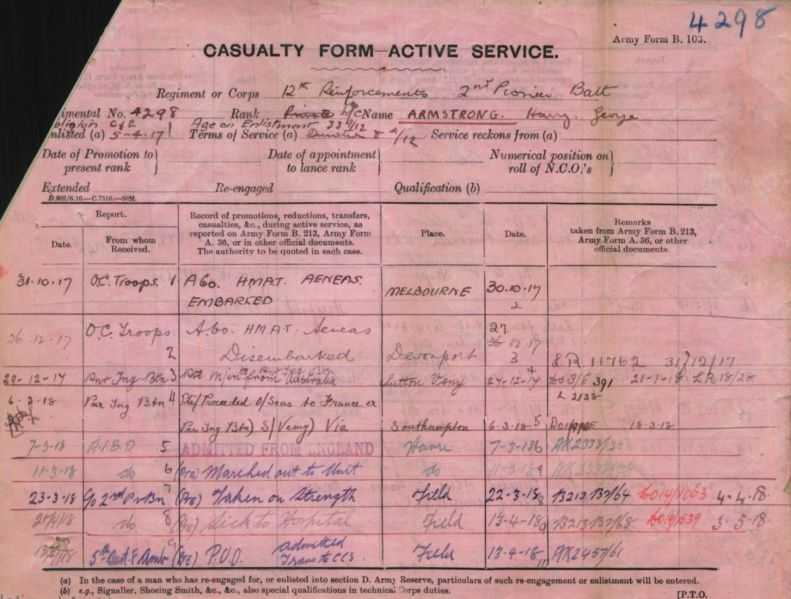 4298
Army Form B. 103.
CASUALTY FORM—ACTIVE SERVICE.
Regiment or Corps 12th Reinforcements 2nd Pioneer Batt
imental No. 4298 Rank Private Name ARMSTRONG. Harry George
Religion C of E Age on Enlistment 33 8/12
nlisted (a) 5-4-17 Terms of Service (a) Service reckons from (a)
Date of Promotion to present rank } Date of appointment to lance rank } Numerical position on roll of N.C.O.'s }
Extended Re-engaged Qualification (b)
Report. Record of promotions, reductions, transfers, casualties, &c., during active service, as reported on Army Form B. 213, Army Form A. 36, or in other official documents. The authority to be quoted in each case. Place. Date. Remarks taken from Army Form B. 213, Army Form A. 36, or other official documents.
Date. From whom Received.
31-10-17 O.C. Troops. 1 A60 HMAT. AENEAS. EMBARKED MELBOURNE 30.10.17 2
26-12-17 O.C. Troops 2 A.60. HMAT. Aeneas Disembarked Devonport 27 12 17 3 LR 11762 31/12/17
29-12-17 Pnr Tng Btn 3 M/in from Australia Sutton Veny 27-12-17 4 391 21-1-18 LR 18/28
6-3-18 Pnr Tng Btn 4 Proceeded O/Seas to France ex L 2/38
Pnr Tng Btn) S/Veny) Via Southampton 6-3-18 5 18-3-18
7-3-18 A.I.B.D 5 ADMITTED FROM ENGLAND Havre 7-3-18 6
11-3-18 do 6 Marched out to Unit do 11-3-18
23-3-18 2nd Pnr Bn 7 Taken on Strength Field 22-3-18 B213 B2/64 4-4-18.
do 8 Sick to Hospital Field 13-4-18 B213 5-5-18.
5th Aust F. Amb 9 P.U.O. admitted Trans to CCS. Field 13-4-18 AK2457/61
(a) In the case of a man who has re-engaged for, or enlisted into section D. Army Reserve, particulars of such re-engagement or enlistment will be entered.
(b) e.g., Signaller, Shoeing Smith, &c., &c., also special qualifications in technical Corps duties.
[P.T.O.